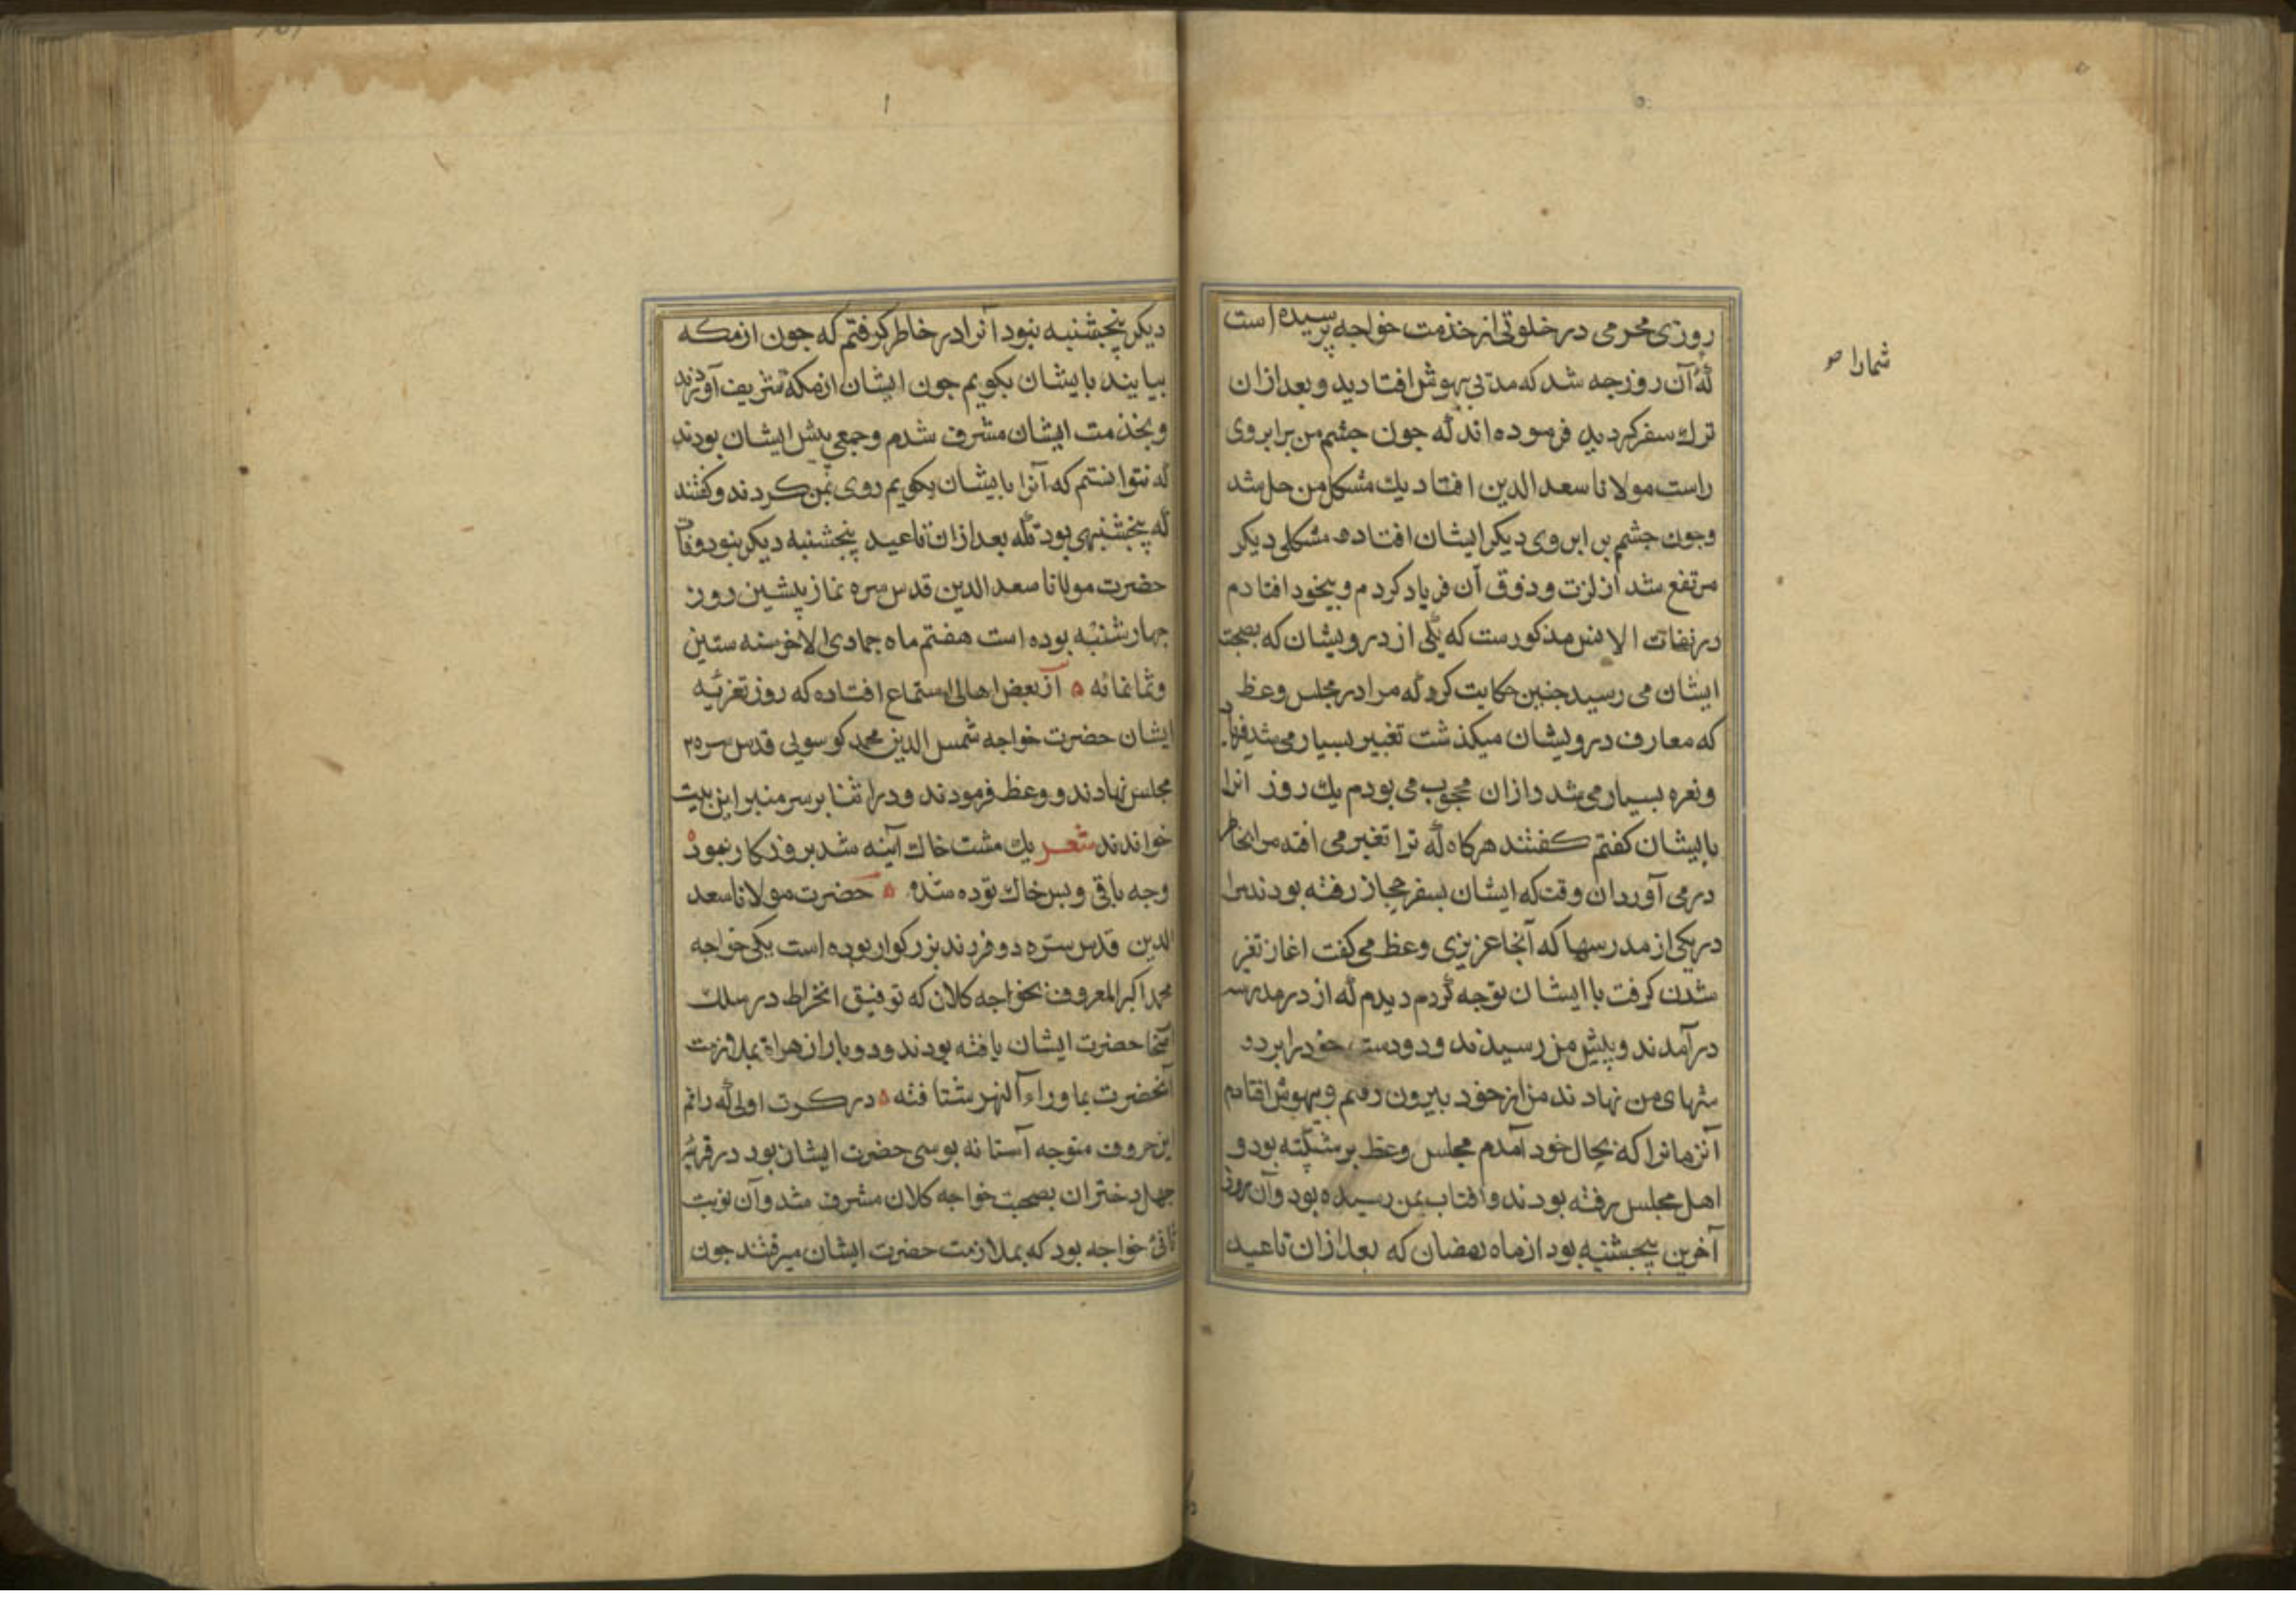 روزی محرمی در خلوتی از خذمت خواجه پرسیده است
که آن روز جه شد که مدتی بیهوش افتادید و بعد ازان
ترك سفر کردید فرموده اند که جون جشم من برابروی
راست مولانا سعد الدین افتاد یك مشکل من حل شد
وجون جشم بن ابروی دیکر ایشان افتاده مشکلی دیکر
مرتفع شد از لزت و ذوق آن فریاد کردم و بیخود افتادم
در نفات الانس مذکورست که یکی از درویشان که بصحبت
ایشان می رسید جنین حکایت کرد که مرا در مجلس وعظ
که معارف درویشان میکذشت تغییر بسیار می شد فریاد
و نعره بسیار می شد دازان محجوب می بودم یك روز انرا
بایشان کفتم کفتند هرکاه که ترا تغیر می افتد مرا بخاطر
در می آور دران وقت که ایشان بسفر حجاز رفته بودند مرا
در یکی از مدرسها که آنجا عزیزی وعظ می کفت اغاز تغیر
شدن کرفت با ایشان توجه کردم دیدم که از در مدرسه
در آمدند و پیش من رسیدند و دو دست خود را بر دو
شهای من نهادند من از خود بیرون رفتم و بیهوش افتادم
آنزمانرا که بحال خود آمدم مجلس وعظ بر شکسته بود و
اهل مجلس رفته بودند و آفتاب بمن رسیده بود وآن روز
آخرین پنجشنبه بود از ماه رمضان که بعد ازان تا عید
شمارا صو
دیکر پنجشنبه نبود آنرا در خاطر کرفتم که جون از مکه
بیایند بایشان بکویم جون ایشان از مکه تشریف آوردند
و بخذمت ایشان مشرف شدم و جمعی پیش ایشان بودند
که نتوانستم که آنرا بایشان بکویم روی بمن کردند و کفتند
که پنجشنبهی بود که بعد ازان تا عید پنجشنبه دیکر نبود وفات
حضرت مولانا سعد الدین قدس سره نماز پیشین روز
جهار شنبه بوده است هفتم ماه جمادی الاخر سنه ستین
وثمانمائه از بعض اهالی استماع افتاده که روز تعزیه
ایشان حضرت خواجه شمس الدین محمد کوسویی قدس سره
مجلس نهادند و وعظ فرمودند و در اثنا بر سر منبر این بیت
خواندند شعر یك مشت خاك آینه شد بروز کار نمود
وجه باقی و پس خاك توده شد حضرت مولانا سعد
الدین قدس سره دو فرزند بزرکوار بوده است یکی خواجه
محمد اکبر المعروف بخواجه کلان که توفیق انخراط در سلك
حضرت ایشان یافته بودند و دو بار از هراة بملازمت
آنحضرت بماوراء النهر شتافته در کرت اولی که راقم
این حروف متوجه آستانه بوسی حضرت ایشان بود در قریۀ
جهل دختران بصحبت خواجه کلان مشرف شد وآن نوبت
ثانی خواجه بود که بملازمت حضرت ایشان میرفتند جون